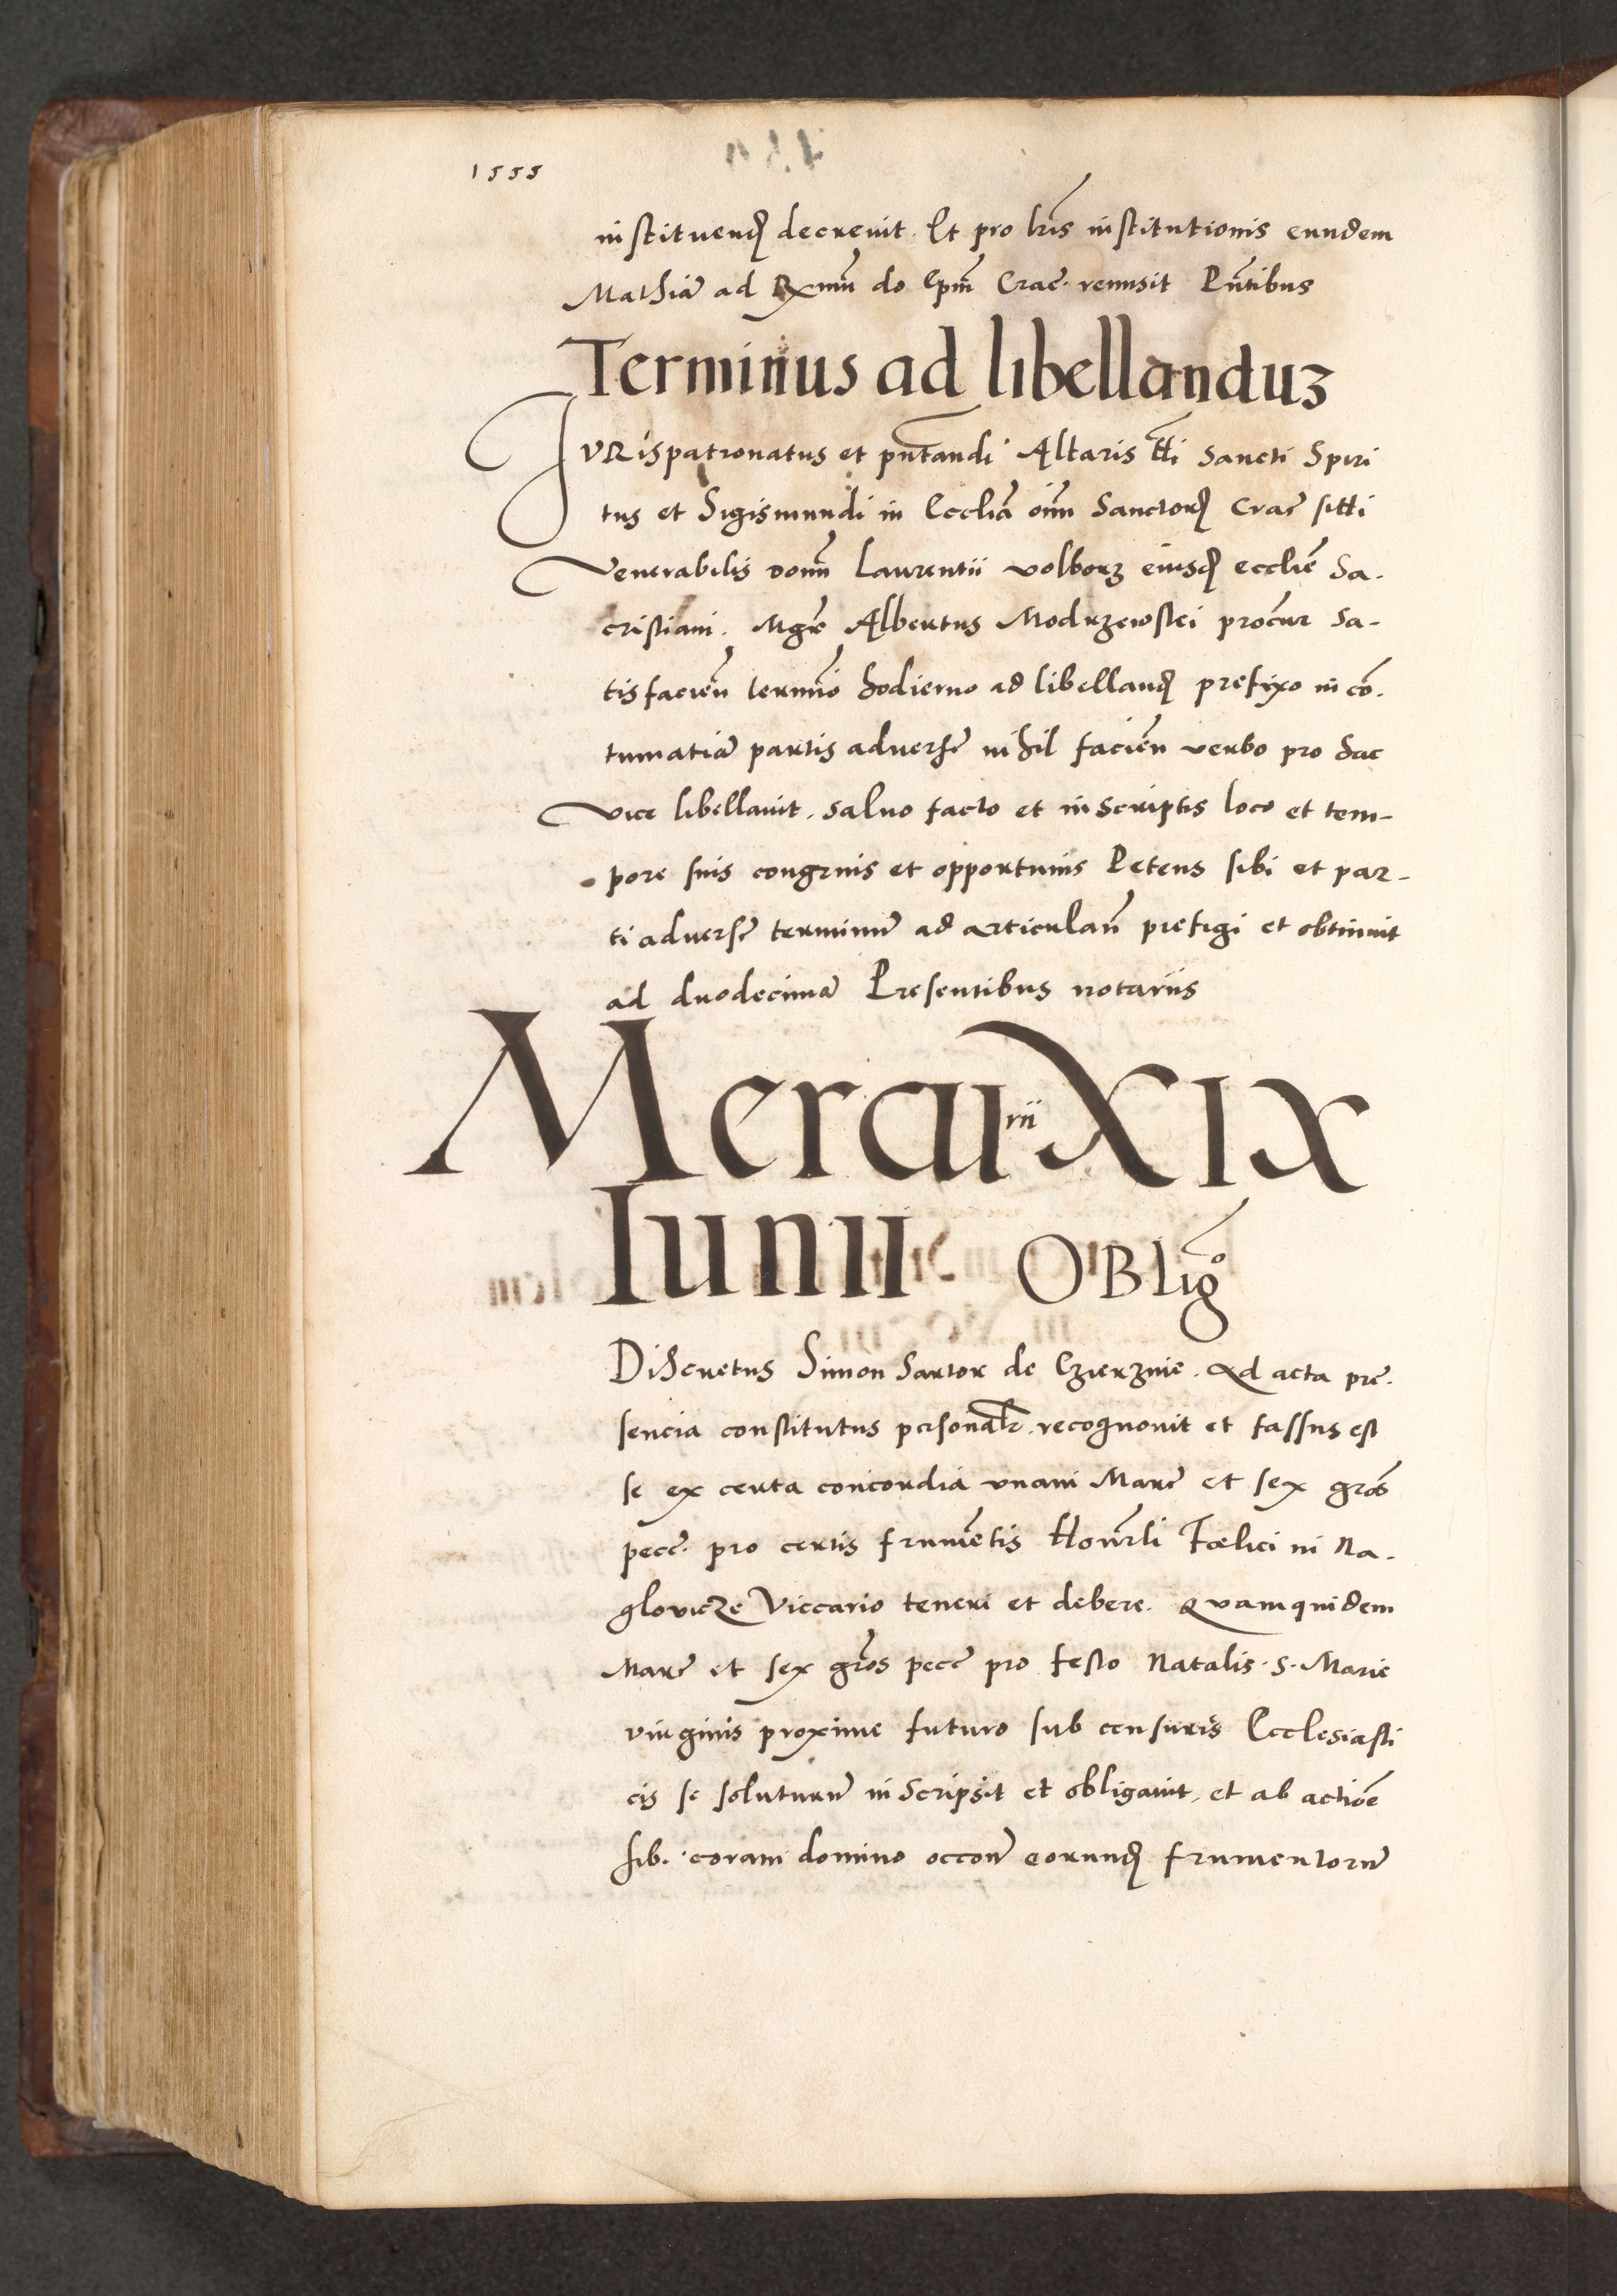 1555
instituend decrevit. Et pro lris institutionis eundem
Mathiā ad Rxmū do Epm̄ Crac. remisit Pn̄tibus
Terminus ad libellanduʒ
IVRispatronatus et pn̄tandi Altaris ttli Sancti Spiri
tus et Sigismundi in Eccliā om̄ Sanctorꝝ Crac sitti
Venerabilis domn̄ Laurentii volborz eiusd eccliē Sa-
cristiani. Mgr̄ Albertus Modrzewski procur Sa-
tisfacien̄ termīo hodierno ad libelland prefixo in cō-
tumatiā partis adverse nihil facien̄ verbo pro hac
vice libellavit. salvo facto et in scriptis loco et tem-
pore suis congruis et opportunis Petens sibi et par-
ti adverse terminū ad articulan̄ prefigi et obtinuit
ad duodecimā Presentibus notariis
Mercurii XIX
Iunii OBligo
Discretus Simon Sartor de Czierznie. Ad acta pre-
sencia constitutus personalr. recognovit et fassus est
se ex certa concordia unam Marc et sex gros
pecc. pro certis frumētis Honrli Fœlici in Na-
glovicze Viccario teneri et debere. Quamquidem
Marc et sex gros pecc pro festo Natalis. S. Marie
virginis proxime futuro sub censuris Ecclesiasti
cis se soluturū inscripsit et obligavit, et ab actiōe
sib. coram domino occōn eorund frumentorū